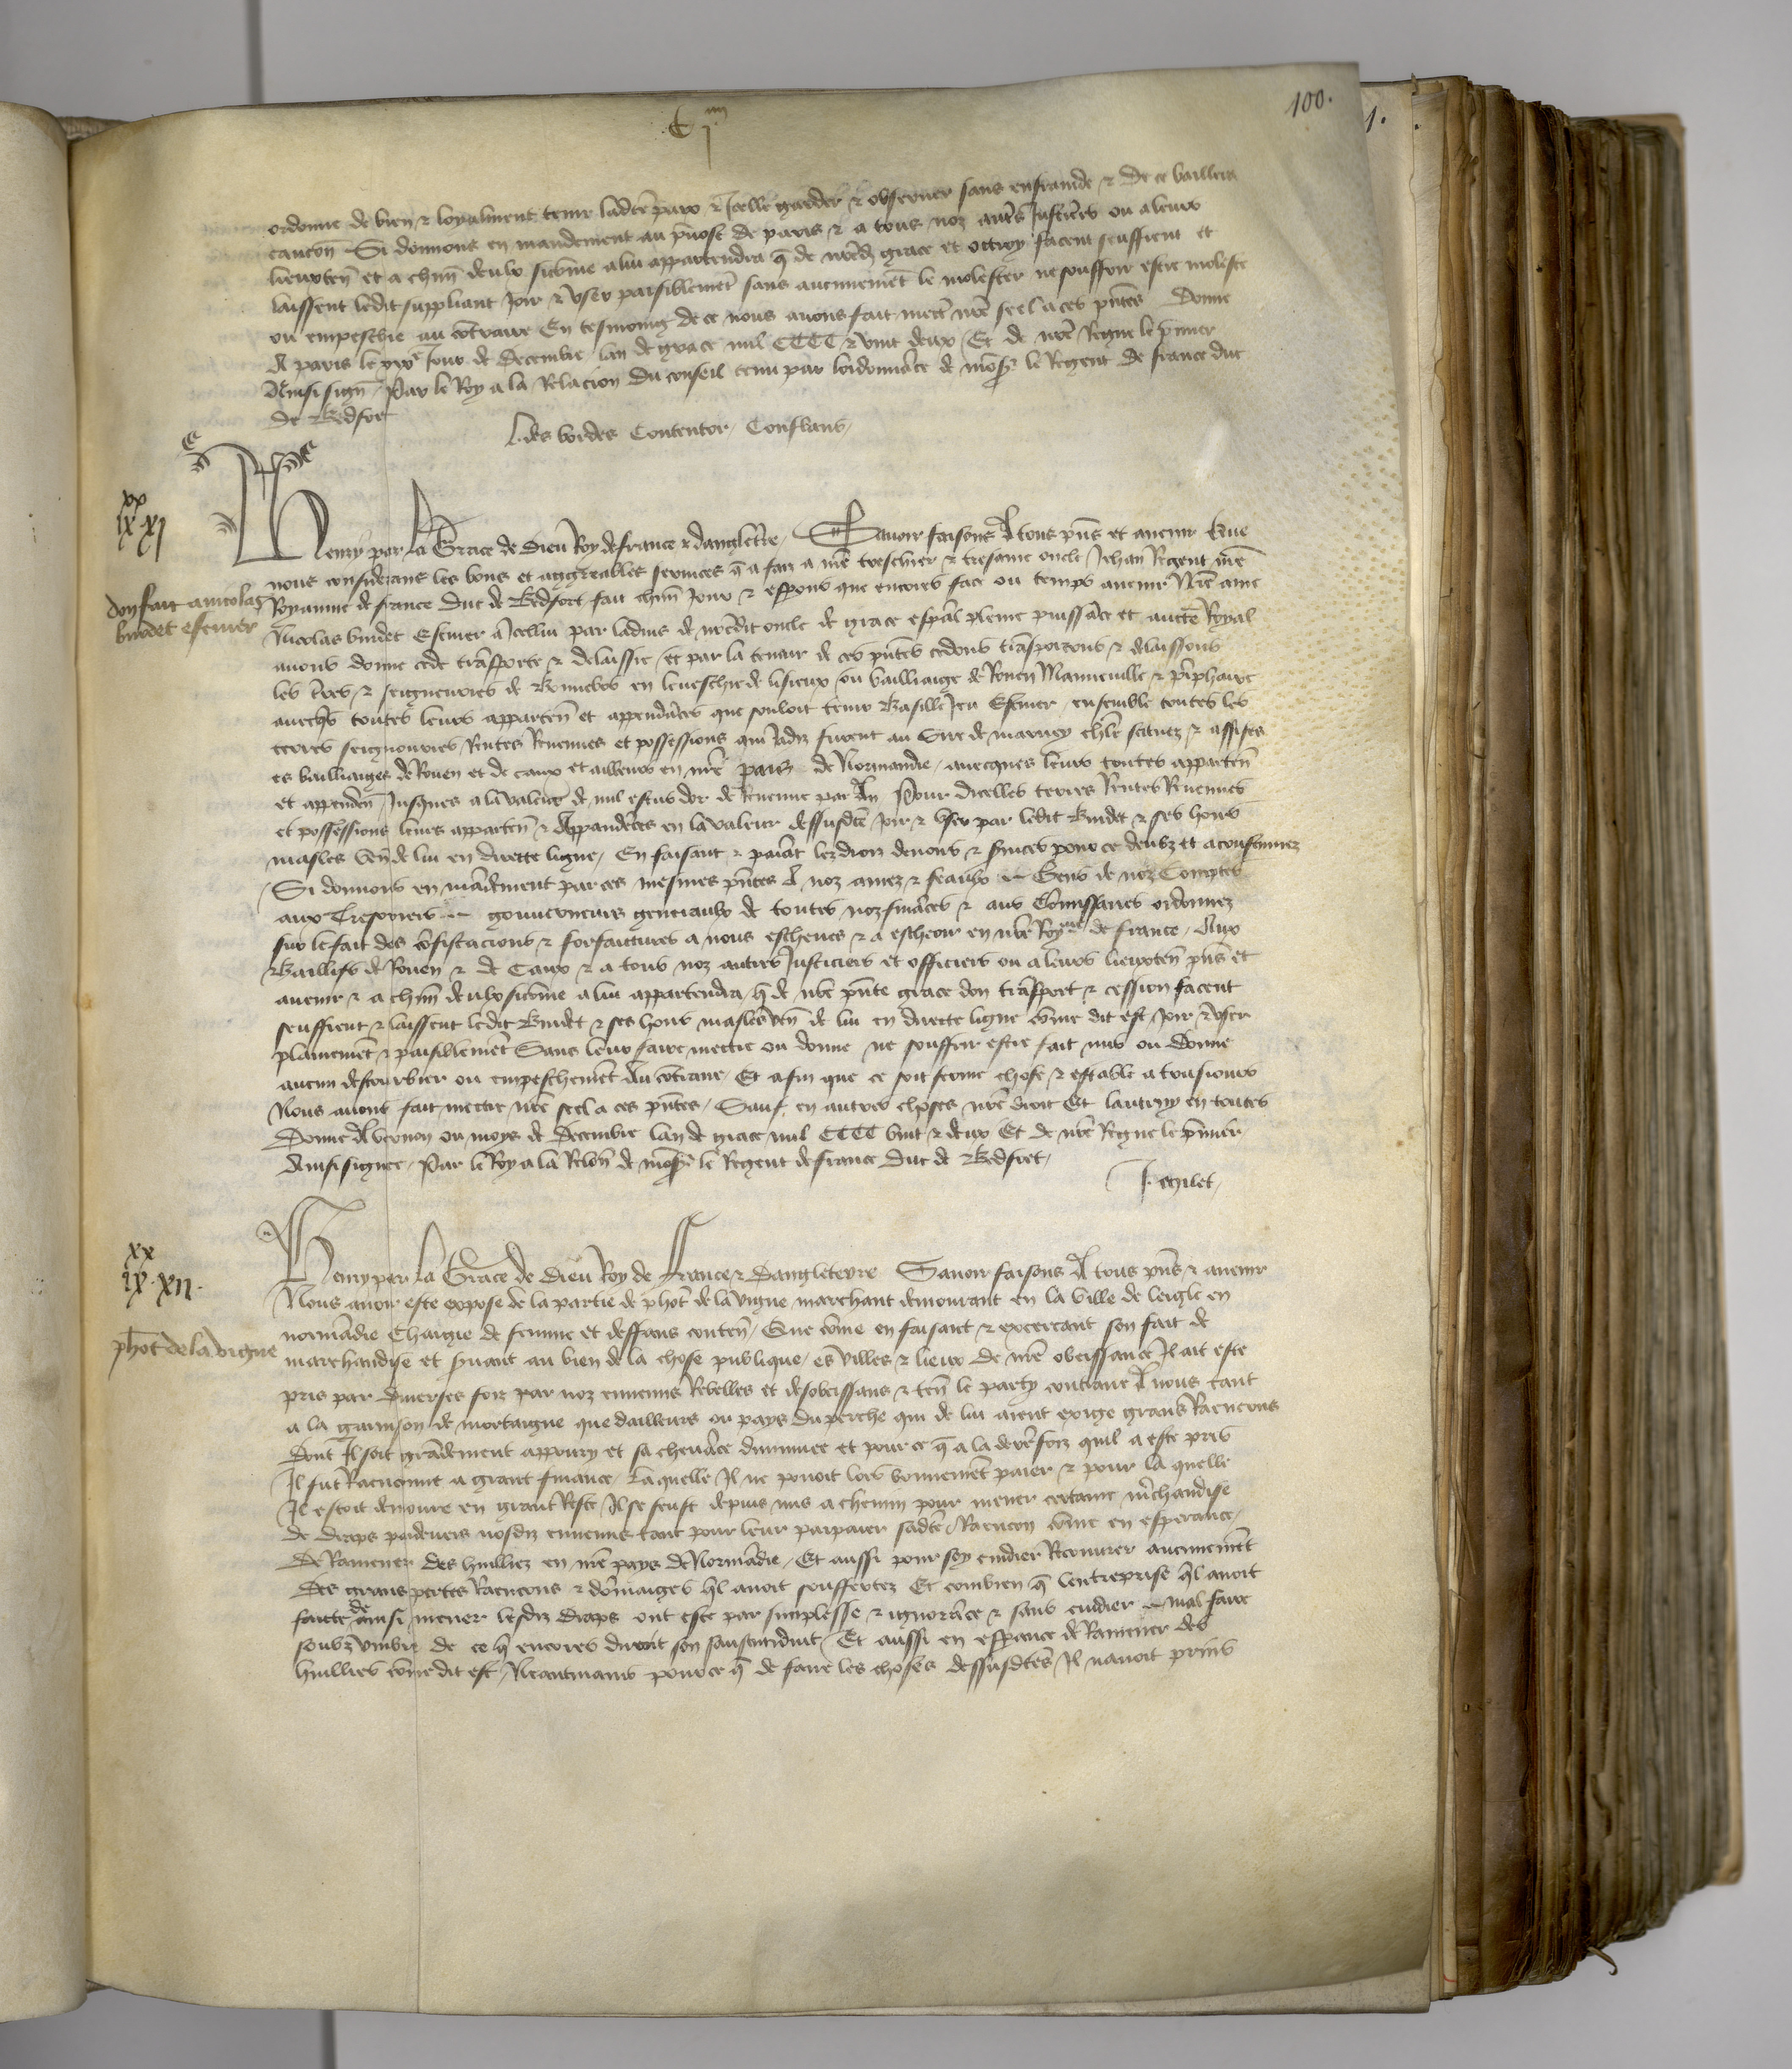 100.
1.
ordonne de bien & loyalment tenir ladcte paix & icelle garder & observer sans enfraindre & de ce baillera
caucon Si donnons en mandement au pvost de paris & a tous noz autres Justiciers ou a leurs
lieuxten et a chun deulx sicome a lui appartendra q de nredz grace et ottroy facent seuffrent et
laissent ledit suppliant joir & user paisiblement sans aucunement le molester ne souffrir estre moleste
ou empeschie au contraire En tesmoing de ce nous avons fait mettre nre seel a ces pntes Donne
A paris le jour de Decembre lan de grace mil CCCC & vint deux Et de nre Regne le pmier
Ainsi sign Par le Roy a la Relacion du conseil tenu par lordonnance de mons le Regent de france duc
de Bedfort
J. des bordes Contentor Conflans
xx
ix xi
Henry par la Grace de Dieu Roy de france & dangletre Savoir faisons A tous pns et avenir Que
nous considerans les bons et aggreables services q a faiz a nre treschier & tresame oncle Jehan Regent nre
Royaume de france Duc de Bedfort fait chun jour & esperons que encores face ou temps avenir Nre ame
don fait a nicolas
burdet escuier
Nicolas burdet Escuier A Icellui par ladvis de nredit oncle de grace espal pleine puissance et aucte Royal
avons donne cede transporte & delaisse et par la teneur de ces pntes cedons transportons & delaissons
les tres & seigneuries de Bonnebos en leveschie de lisieux ou bailliaige de Rouen Manneville &
avecqs toutes leurs apparten et appendaces que souloit tenir Basille Jeu Escuier ensemble toutes les
terres seignouries Rentes Revenues et possessions qui jadiz furent au Sire de marny chlr scituez & assises
es bailliaiges de Rouen et de caux et ailleurs en nre pais de Normandie avecques leurs toutes apparten
et appenden jusques a la valeur de mil escus dor de Revenue par An Pour dicelles terres Rentes Revenues
et possessions leurs apparten & Appandeces en la valeur dessusdcte joir & user par ledit Burdet & ses hoirs
masles ven de lui en directe ligne En faisant & paiant lez droiz devoirs & svices pour ce deubz et acoustumez
Si donnons en mandement par ces mesmes pntes A noz amez & feaulx Gens de noz Comptes
aux Tresoriers gouverneurs generaulx de toutes noz finaces & aus Comissaires ordonnez
sur le fait des cofiscacions & forfaictures a nous escheues & a escheoir en nre Royme de france Aux
Baillifs de Rouen & de Caux & a tous noz autres Justiciers et officiers ou a leurs lieuxten pns et
avenir & a chun deulx sicome a lui appartendra q de nre pnte grace don transport & cession facent
seuffrent & laissent ledit Burdet & ses hoirs masles ven de lui en directe ligne come dit est joir & user
plainement & paisiblement Sans leur faire mettre ou donne ne souffrir estre fait mis ou donne
aucun destourbier ou empeschement Au contraire Et afin que ce soit ferme chose & estable a tousiours
Nous avons fait mettre nre seel a ces pntes Sauf en autres choses nre droit Et lautruy en toutes
Donne A vernon ou moys de Decembre lan de grace mil CCCC vint & deux Et de nre Regne le pmier
Ainsi signee Par le Roy a la Relon de mons le Regent de france Duc de Bedfort
J. egilet
xx
ix xii.
Henry par la Grace de Dieu Roy de france & Dangleterre Savoir faisons A tous pns & avenir
Nous avoir este expose de la partie de phot de la vigne marchant demourant en la ville de leigle en
phot de la vigne
normandie Chargie de femme et deffans conten Que come en faisant & excercant son fait de
marchandise et svant au bien de la chose publique es villes & lieux de nre obeissance Il ait este
pris par diverses foiz par noz ennemis Rebelles et desobeissans & ten le party contraire A nous tant
a la garnison de mortaigne que dailleurs ou pays du perche qui de lui aient exige grans Raencons
Dont Il soit grandement appoury et sa chevance diminuee et pour ce q a la der foiz quil a este pris
Il fut Raenconne a grant finance Laquelle Il ne povoit lors bonnement paier & pour la quelle
Il estoit demoure en grant Reste Il se feust depuis mis a chemin pour mener certaine mchandise
de draps pardevers nosdiz ennemis tant pour leur parpaier sadcte Raencon come en esperance
De Ramener des huilliez en nre pays de Normandie Et aussi pour soy cuidier Recouvrer aucunement
des grans pertes Raencons & domaiges ql avoit souffertez Et combien q lentreprise ql avoit
faicte de ainsi mener lesdiz draps ont este par simplesse & ignorance & sans cuidier mal faire
soubz umbre de ce q encores duroit son saufconduit Et aussi en esperance de Ramener des
huilles come dit est Neantmains pour ce q de faire les choses dessusdctes Il navoit prins